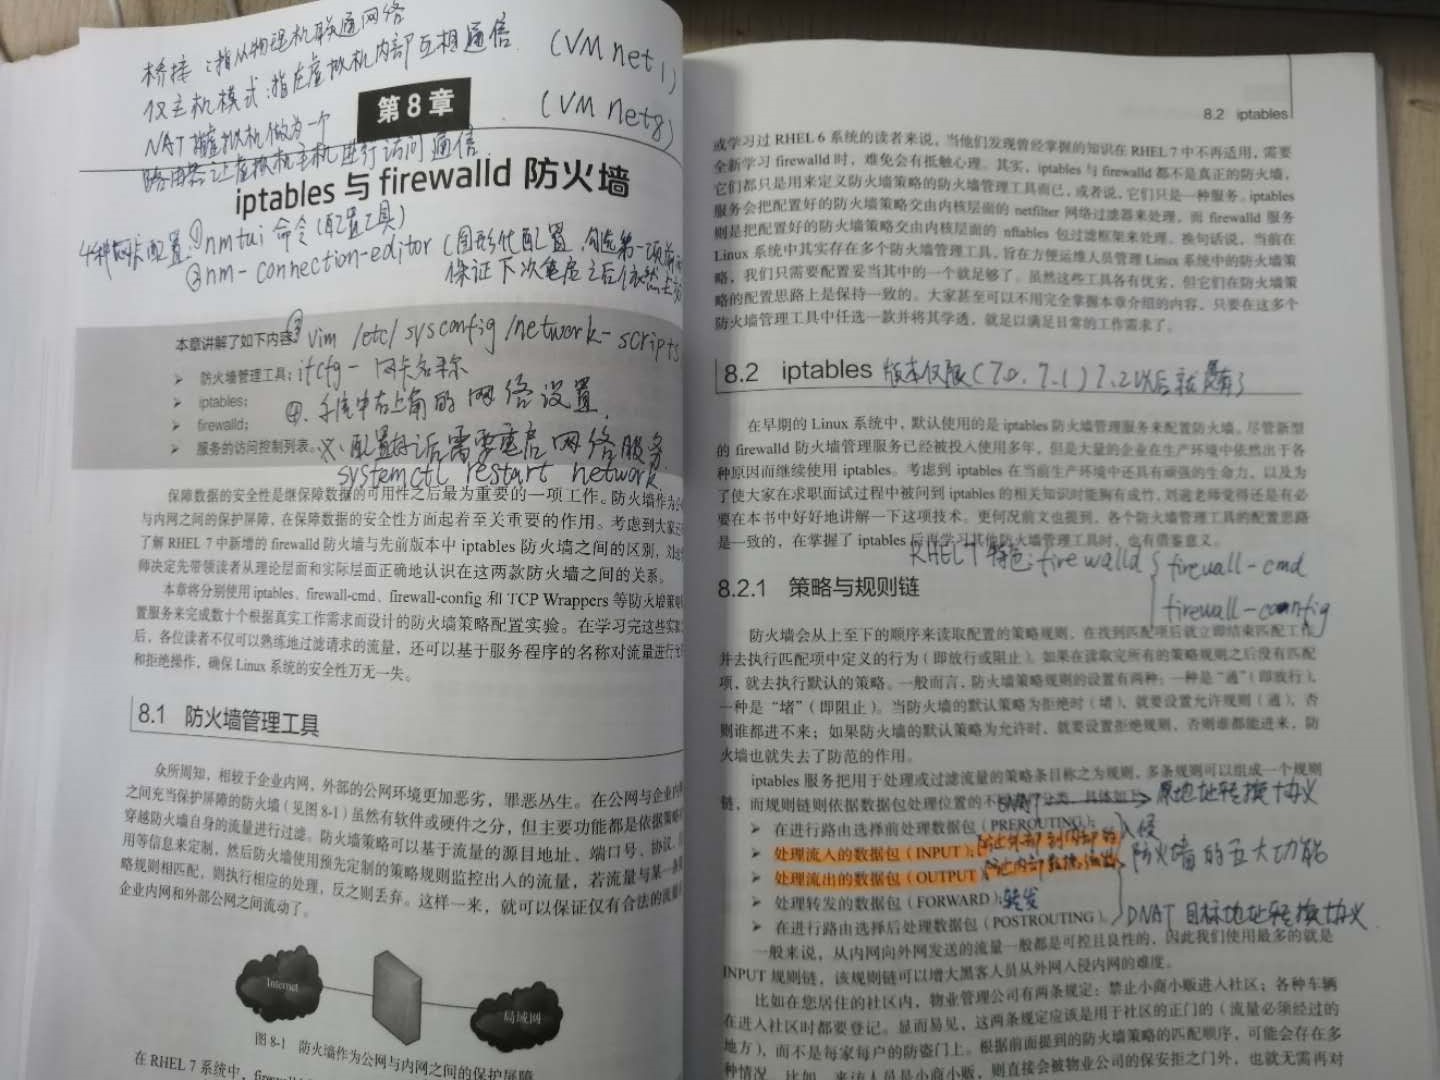 桥接：指从物理机联通网络
仅主机模式：指在虚拟机内部互相通信 (VMnet1)
NAT 虚拟机做为一个 (VMnet8)
路由器让虚拟机主机进行访问通信
第 8 章
iptables 与 firewalld 防火墙
4种网卡配置：①nmtui 命令(配置工具)
②nm-connection-editor (图形化配置 勾选第一项
保证下次重启之后依然
③ vim /etc/sysconfig/network-scripts
ifcfg-网卡名称
④. 右上角的网络设置.
※. 配置好后需要重启网络服务
systemctl restart network
本章讲解了如下内容：
➢ 防火墙管理工具；
➢ iptables；
➢ firewalld；
➢ 服务的访问控制列表。
保障数据的安全性是继保障数据的可用性之后最为重要的一项工作。防火墙作为公
与内网之间的保护屏障，在保障数据的安全性方面起着至关重要的作用。考虑到大家
了解 RHEL 7 中新增的 firewalld 防火墙与先前版本中 iptables 防火墙之间的区别，
师决定先带领读者从理论层面和实际层面正确地认识在这两款防火墙之间的关系。
本章将分别使用 iptables、firewall-cmd、firewall-config 和 TCP Wrappers 等防火墙策略
置服务来完成数十个根据真实工作需求而设计的防火墙策略配置实验。在学习完这些实
后，各位读者不仅可以熟练地过滤请求的流量，还可以基于服务程序的名称对流量进行
和拒绝操作，确保 Linux 系统的安全性万无一失。
8.1 防火墙管理工具
众所周知，相较于企业内网，外部的公网环境更加恶劣，罪恶丛生。在公网与企业内
之间充当保护屏障的防火墙（见图 8-1）虽然有软件或硬件之分，但主要功能都是依据策略
穿越防火墙自身的流量进行过滤。防火墙策略可以基于流量的源目地址、端口号、协议、
用等信息来定制，然后防火墙使用预先定制的策略规则监控出入的流量，若流量与某一
略规则相匹配，则执行相应的处理，反之则丢弃。这样一来，就可以保证仅有合法的流量
企业内网和外部公网之间流动了。
Internet
局域网
图 8-1 防火墙作为公网与内网之间的保护屏障
在 RHEL 7 系统中，
8.2 iptables
或学习过 RHEL 6 系统的读者来说，当他们发现曾经掌握的知识在 RHEL 7 中不再适用，需要
全新学习 firewalld 时，难免会有抵触心理。其实，iptables 与 firewalld 都不是真正的防火墙，
它们都只是用来定义防火墙策略的防火墙管理工具而已，或者说，它们只是一种服务。iptables
服务会把配置好的防火墙策略交由内核层面的 netfilter 网络过滤器来处理，而 firewalld 服务
则是把配置好的防火墙策略交由内核层面的 nftables 包过滤框架来处理。换句话说，当前在
Linux 系统中其实存在多个防火墙管理工具，旨在方便运维人员管理 Linux 系统中的防火墙策
略，我们只需要配置妥当其中的一个就足够了。虽然这些工具各有优劣，但它们在防火墙策
略的配置思路上是保持一致的。大家甚至可以不用完全掌握本章介绍的内容，只要在这多个
防火墙管理工具中任选一款并将其学透，就足以满足日常的工作需求了。
8.2 iptables 版本仅限(7.0、7.1) 7.2以后就没有了
在早期的 Linux 系统中，默认使用的是 iptables 防火墙管理服务来配置防火墙。尽管新型
的 firewalld 防火墙管理服务已经被投入使用多年，但是大量的企业在生产环境中依然出于各
种原因而继续使用 iptables。考虑到 iptables 在当前生产环境中还具有顽强的生命力，以及为
了使大家在求职面试过程中被问到 iptables 的相关知识时能胸有成竹，刘遄老师觉得还是有必
要在本书中好好地讲解一下这项技术。更何况前文也提到，各个防火墙管理工具的配置思路
是一致的，在掌握了 iptables 后再学习其他防火墙管理工具时，也有借鉴意义。
RHEL7 特色：firewalld { firewall-cmd
firewall-config
8.2.1 策略与规则链
防火墙会从上至下的顺序来读取配置的策略规则，在找到匹配项后就立即结束匹配工作
并去执行匹配项中定义的行为（即放行或阻止）。如果在读取完所有的策略规则之后没有匹配
项，就去执行默认的策略。一般而言，防火墙策略规则的设置有两种：一种是“通”（即放行），
一种是“堵”（即阻止）。当防火墙的默认策略为拒绝时（堵），就要设置允许规则（通），否
则谁都进不来；如果防火墙的默认策略为允许时，就要设置拒绝规则，否则谁都能进来，防
火墙也就失去了防范的作用。
iptables 服务把用于处理或过滤流量的策略条目称之为规则，多条规则可以组成一个规则
链，而规则链则依据数据包处理位置的不同进行分类，具体如下 → 原地址转换协议
➢ 在进行路由选择前处理数据包（PREROUTING）；
➢ 处理流入的数据包（INPUT）；防止外部到内部的入侵
➢ 处理流出的数据包（OUTPUT 防止内部数据
防火墙的五大功能
➢ 处理转发的数据包（FORWARD）；转发
➢ 在进行路由选择后处理数据包（POSTROUTING）。 DNAT 目标地址转换协议
一般来说，从内网向外网发送的流量一般都是可控且良性的，因此我们使用最多的就是
INPUT 规则链，该规则链可以增大黑客人员从外网入侵内网的难度。
比如在您居住的社区内，物业管理公司有两条规定：禁止小商小贩进入社区；各种车辆
在进入社区时都要登记。显而易见，这两条规定应该是用于社区的正门的（流量必须经过的
地方），而不是每家每户的防盗门上。根据前面提到的防火墙策略的匹配顺序，可能会存在多
种情况。比如，来访人员是小商小贩，则直接会被物业公司的保安拒之门外，也就无需再对